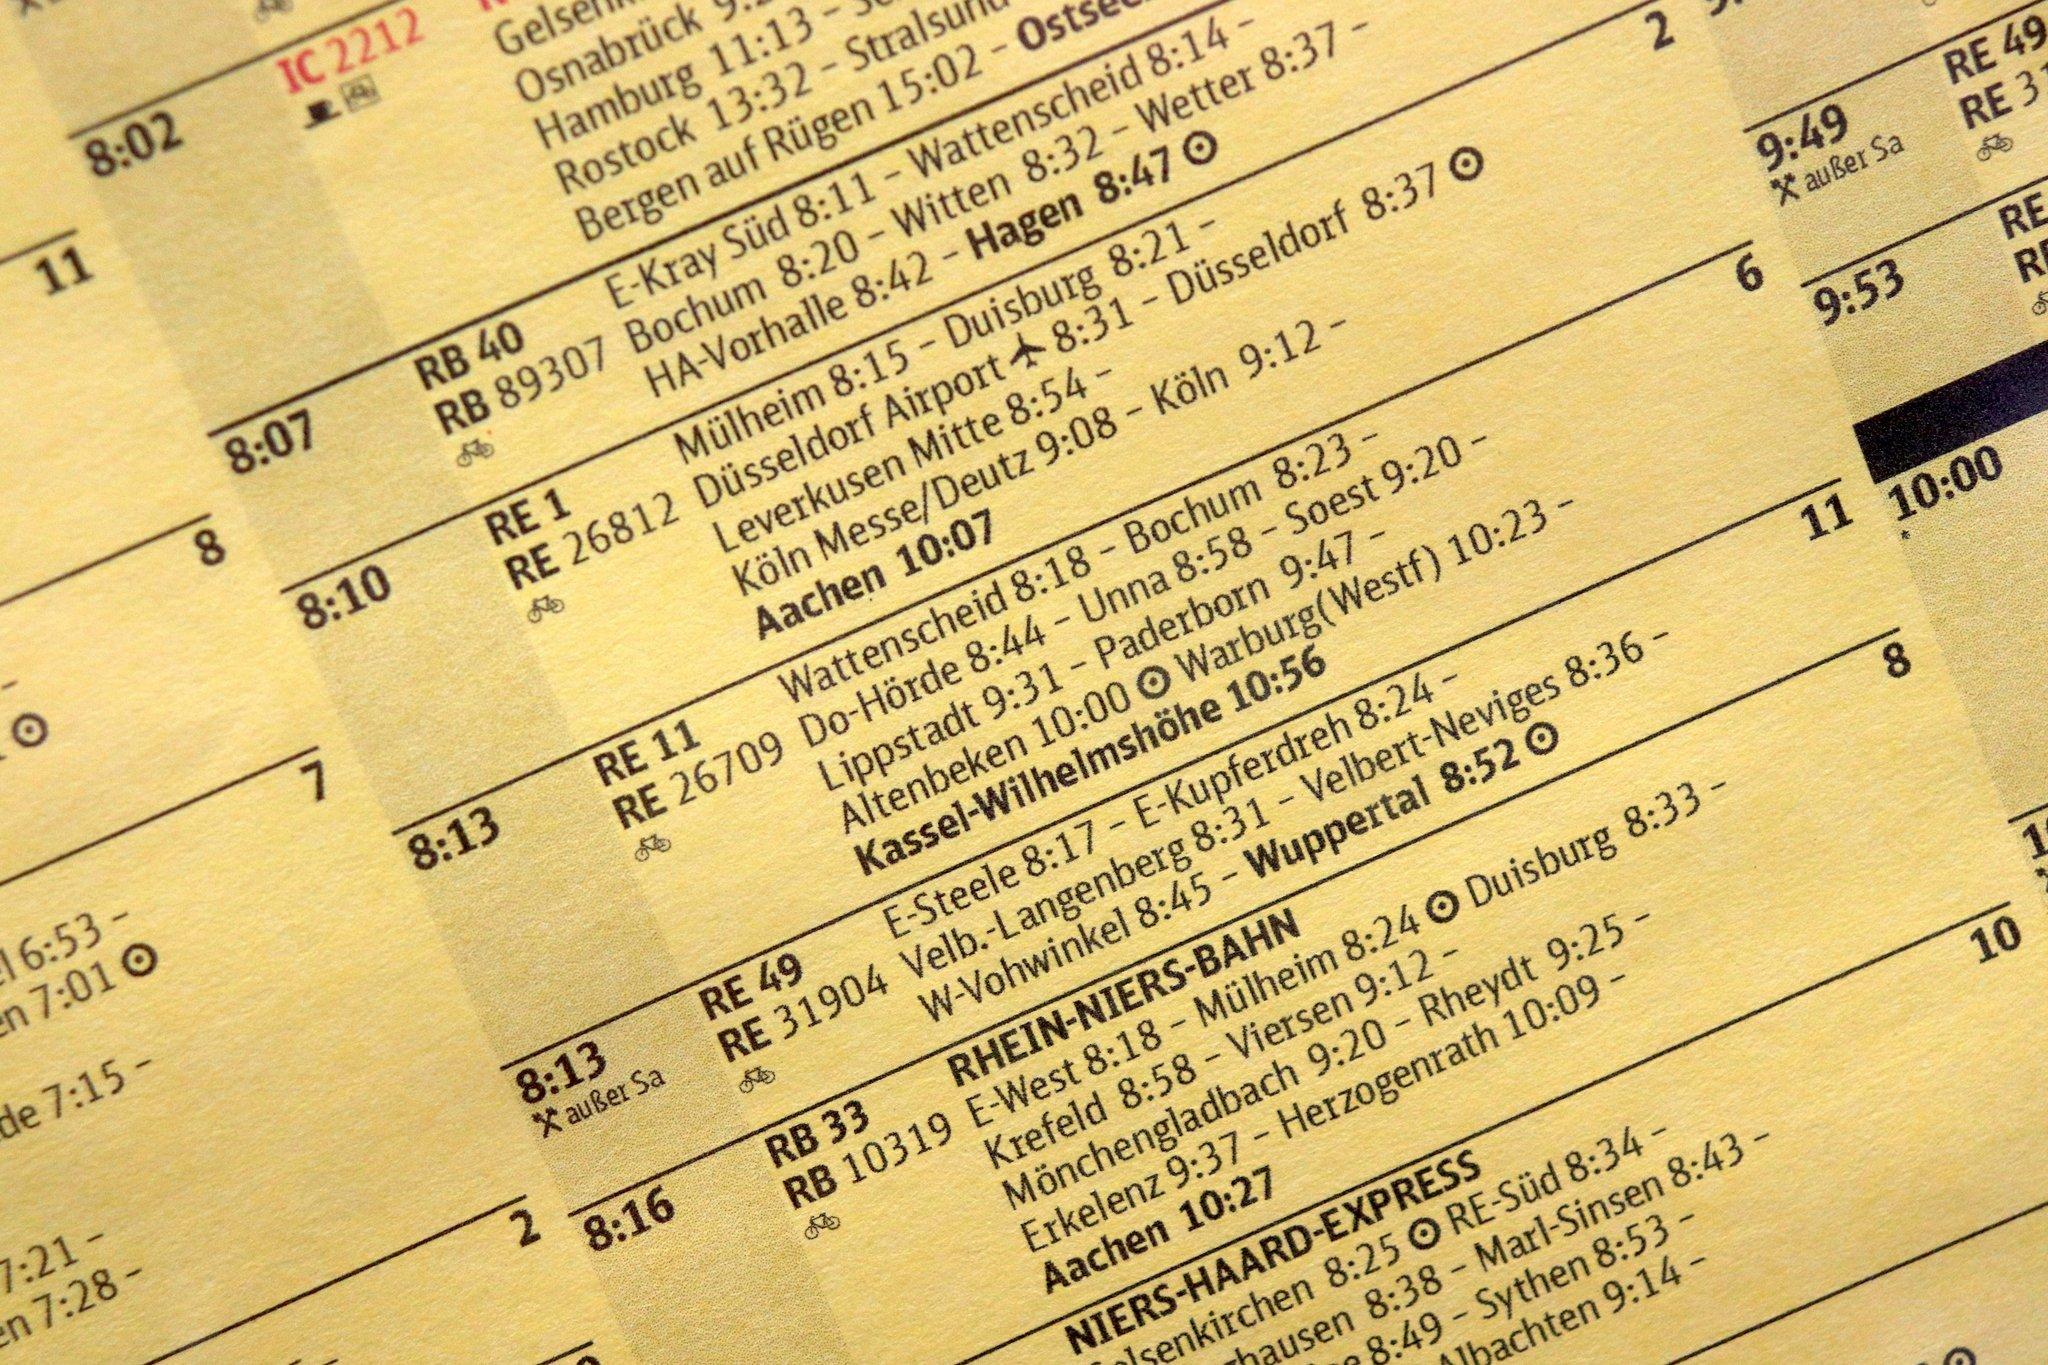 11
8
7
6:53 –
7:01
7:15 –
7:21 –
7:28 –
2
8:02
IC 2212
Osnabrück
Hamburg 11:13 –
Rostock 13:32 – Stralsund
Bergen auf Rügen 15:02 –
8:07
RB 40
RB 89307
E-Kray Süd 8:11 – Wattenscheid 8:14 –
Bochum 8:20 – Witten 8:32 – Wetter 8:37 –
HA-Vorhalle 8:42 – Hagen 8:47
2
8:10
RE 1
RE 26812
Mülheim 8:15 – Duisburg 8:21 –
Düsseldorf Airport 8:31 – Düsseldorf 8:37
Leverkusen Mitte 8:54 –
Köln Messe/Deutz 9:08 – Köln 9:12 –
Aachen 10:07
6
8:13
RE 11
RE 26709
Wattenscheid 8:18 – Bochum 8:23 –
Do-Hörde 8:44 – Unna 8:58 – Soest 9:20 –
Lippstadt 9:31 – Paderborn 9:47 –
Altenbeken 10:00 Warburg(Westf) 10:23 –
Kassel-Wilhelmshöhe 10:56
11
8:13
außer Sa
RE 49
RE 31904
E-Steele 8:17 – E-Kupferdreh 8:24 –
Velb.-Langenberg 8:31 – Velbert-Neviges 8:36 –
W-Vohwinkel 8:45 – Wuppertal 8:52
8
8:16
RB 33
RB 10319
RHEIN-NIERS-BAHN
E-West 8:18 – Mülheim 8:24 Duisburg 8:33 –
Krefeld 8:58 – Viersen 9:12 –
Mönchengladbach 9:20 – Rheydt 9:25 –
Erkelenz 9:37 – Herzogenrath 10:09 –
Aachen 10:27
10
NIERS-HAARD-EXPRESS
8:25 RE-Süd 8:34 –
8:38 – Marl-Sinsen 8:43 –
8:49 – Sythen 8:53 –
9:14 –
9:49
außer Sa
RE 49
RE
9:53
RE
10:00